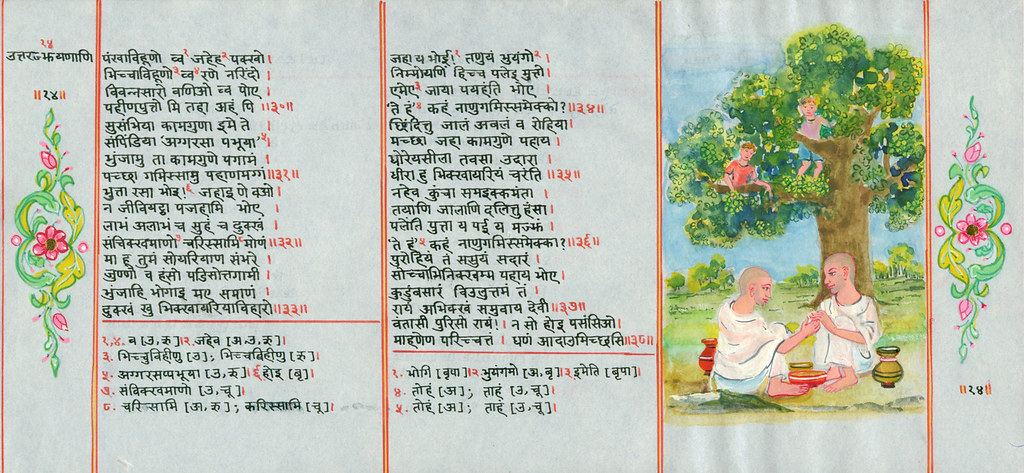 १४
उत्तरज्झयणाणि
॥१४॥
पंखाविहूणो व्व¹ जहेह² पक्खी।
भिच्चाविहूणो³ व्व⁴ रणे नरिंदो।
विवन्नसारो वणिओ व्व पोए।
पहीणपुत्तो मि तहा अहं पि॥३०॥
सुसंभिया कामगुणा इमे ते।
संपिंडिया 'अग्गरसा पभूया'⁵।
भुंजामु ता कामगुणे पगामं।
पच्छा गमिस्सामु पहाणमग्गं॥३१॥
भुत्ता रसा भोइ!⁶ जहाइ णे वओ।
न जीवियट्ठा पजहामि भोए।
लाभं अलाभं च सुहं च दुक्खं
संचिक्खमाणो⁷ चरिस्सामि⁸ मोणं॥३२॥
मा हू तुमं सोयरियाण संभरे।
जुण्णो व हंसो पडिसोत्तगामी।
भुंजाहि भोगाइ मए समाणं।
दुक्खं खु भिक्खायरियाविहारो॥३३॥
१,४. व [उ, ऋ]। २. जहेव [अ, उ, ऋ]।
३. भिच्चुविहीणु [उ]; भिच्चविहीणु [ऋ]।
५. अग्गरसप्पभूया [उ, ऋ]। ६. होइ [बृ]।
७. संविक्खमाणो [उ, चू]।
८. चरिसामि [अ, ऋ]; करिस्सामि [चू]।
जहा य भोई!¹ तणुयं भुयंगो²।
निम्मोयणिं हिच्च पलेइ मुत्तो।
एमेए³ जाया पयहंति भोए।
'ते हं'⁴ कहं नाणुगमिस्समेक्को?॥३४॥
छिंदित्तु जालं अबलं व रोहिया।
मच्छा जहा कामगुणे पहाय।
धोरेयसीला तवसा उदारा।
धीरा हु भिक्खायरियं चरंति॥३५॥
नहेव कुंचा समइक्कमंता।
तयाणि जालाणि दलित्तु हंसा।
पलेंति पुत्ता य पई य मज्झं
'ते हं'⁵ कहं नाणुगमिस्समेक्का?॥३६॥
पुरोहियं तं ससुयं सदारं।
सोच्चाभिनिक्खम्म पहाय भोए।
कुडुंबसारं विउलुत्तमं तं।
रायं अभिक्खं समुवाय देवी॥३७॥
वंतासी पुरिसो रायं!। न सो होइ पसंसिओ।
माहणेण परिच्चत्तं। धणं आदाउमिच्छसि॥३८॥
१. भोगि [बृपा]। २. भुयंगमो [अ, बृ]। ३. इमेति [बृपा]।
४. तोहं [अ]; ताहं [उ, चू]।
५. तोहं [अ]; ताहं [उ, चू]।
॥१४॥